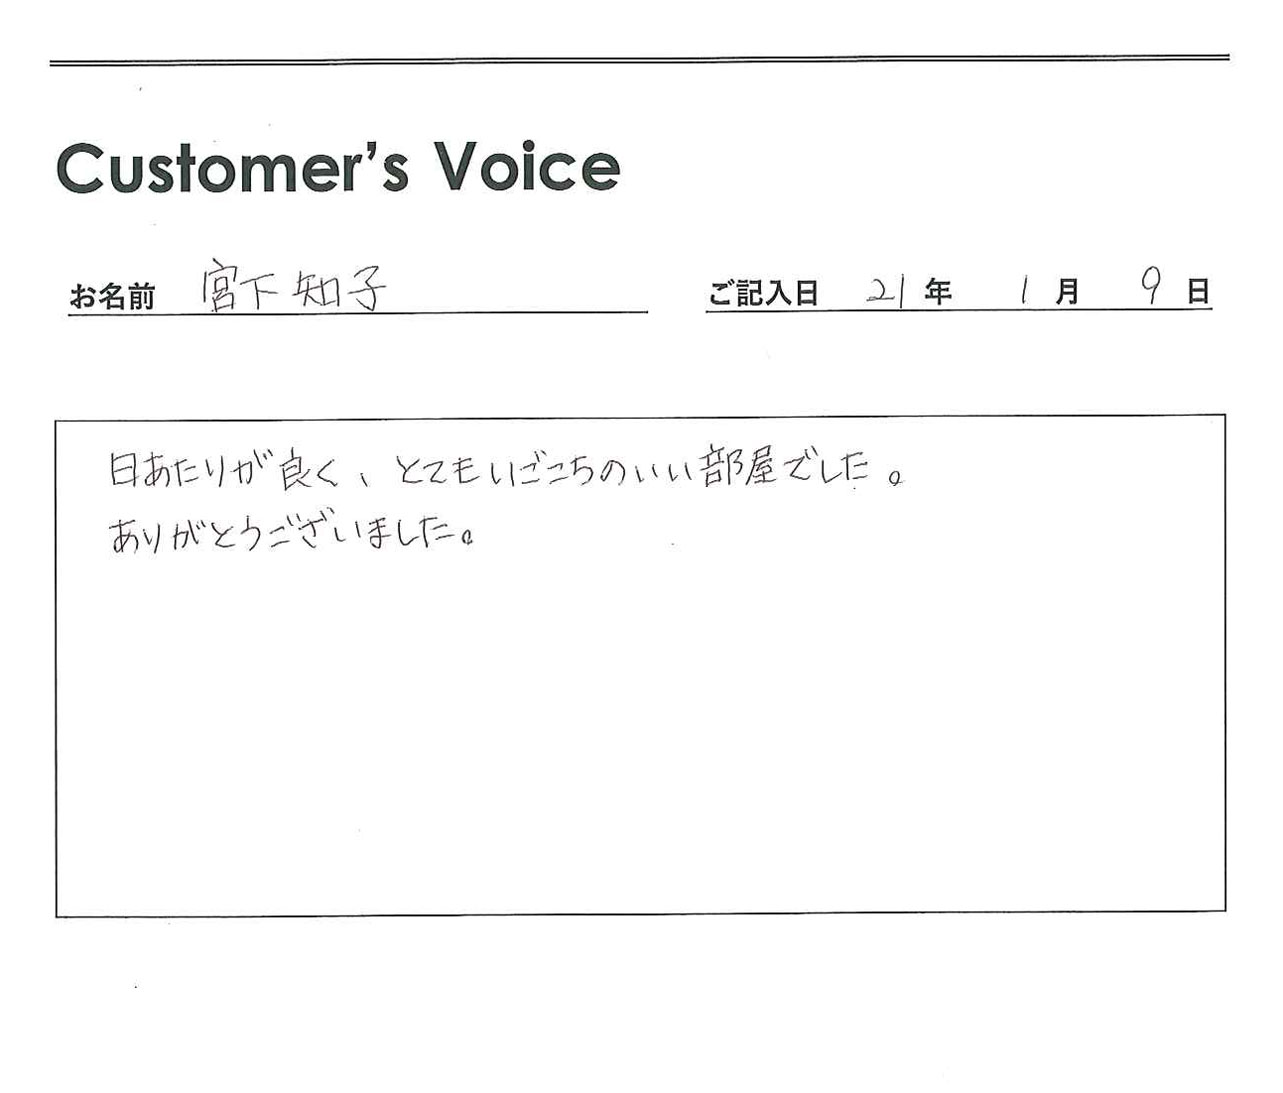 Customer's Voice
お名前 宮下知子 ご記入日 21年 1月 9日
日あたりが良く、とてもいごこちのいい部屋でした。
ありがとうございました。